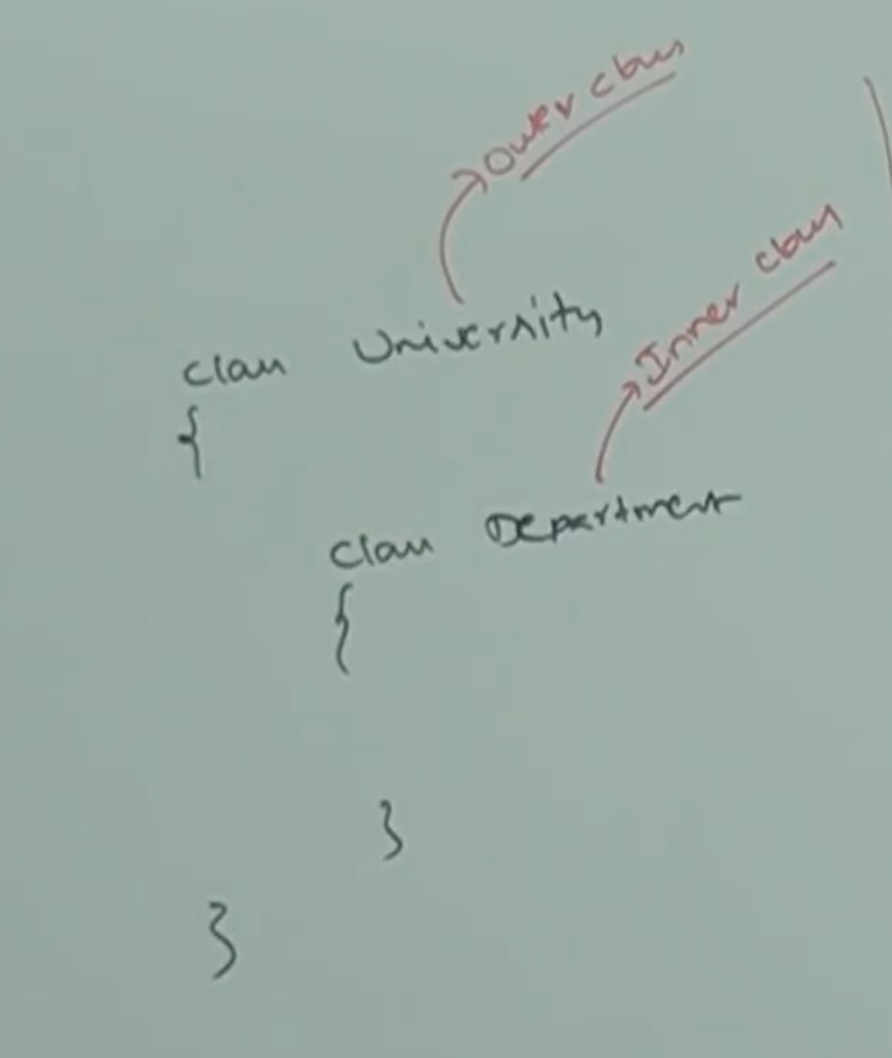 Outer class
class University
{
Inner class
class Department
{
}
}